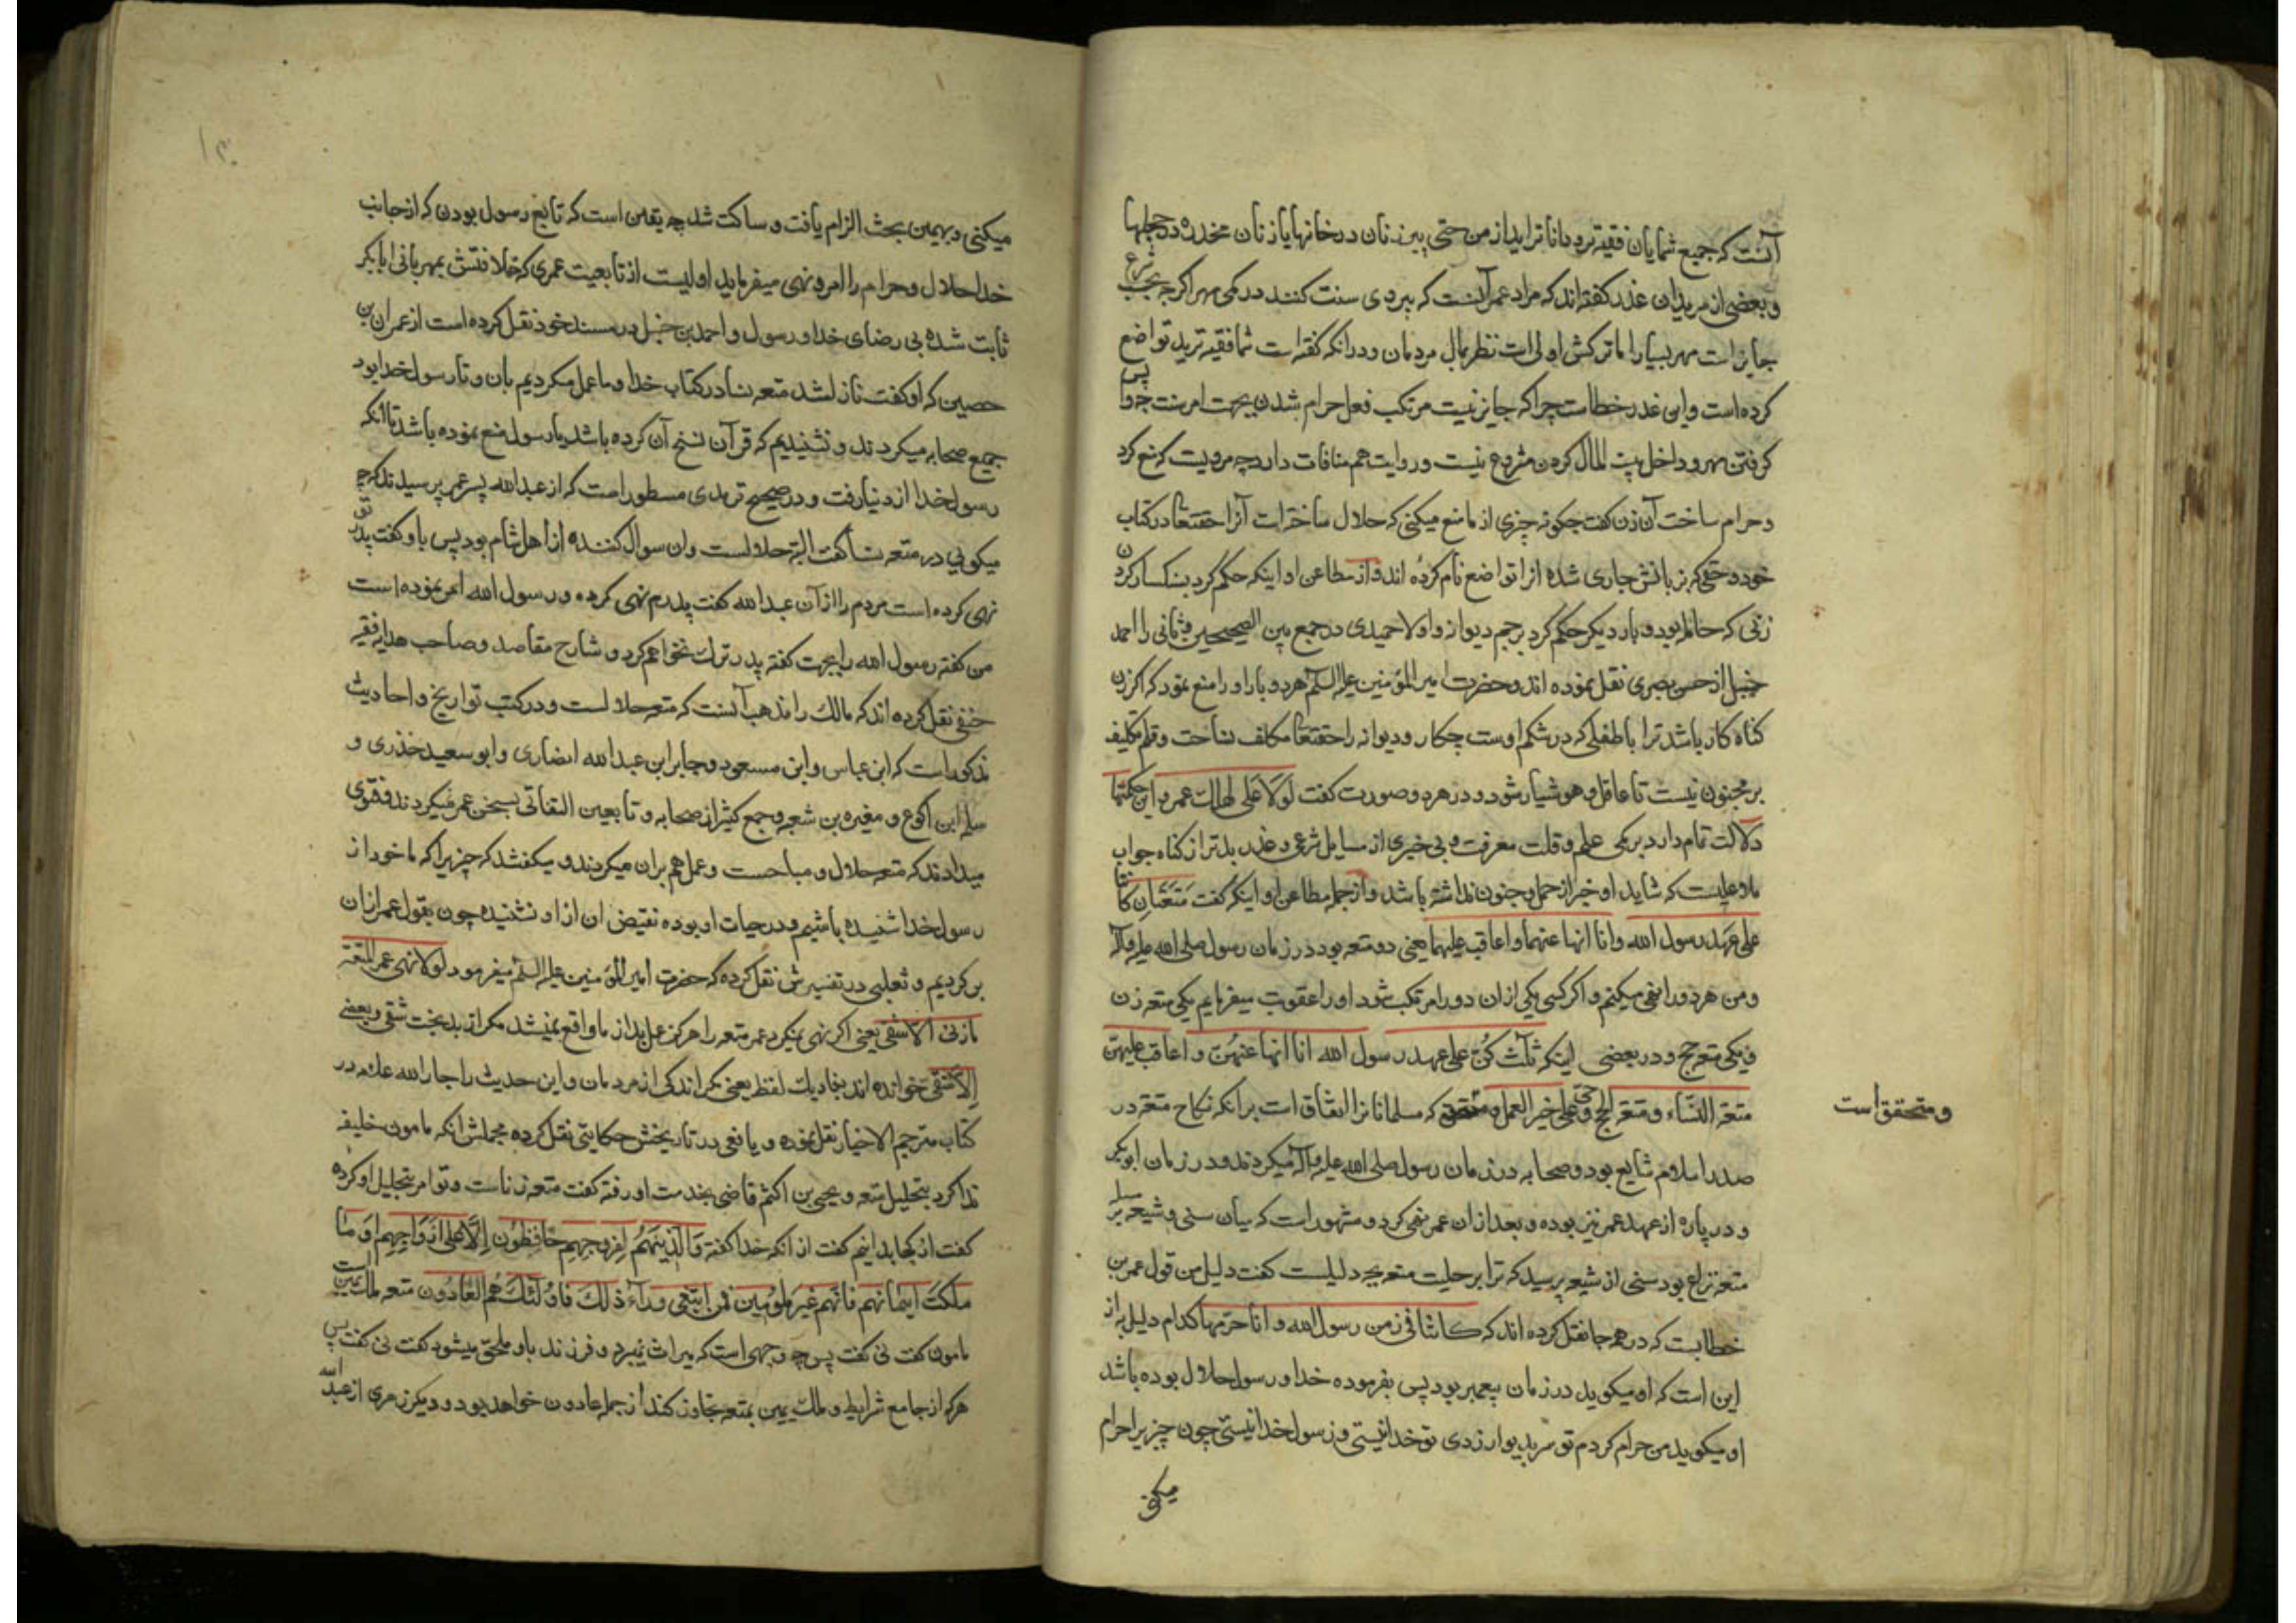 آنست که جمیع شمایان فقیه‌تر و داناتر اید از من حتی پیرزنان در خانها یا زنان مخدره در حجلها
و بعضی از مریدان عذر گفته‌اند که مراد عمر آنست که پیروی سنت کنند در کمی مهر اگر چه بحسب شرع
جایز است مهر بسیار اما ترکش اولی است نظر بمال مردمان و در انکه گفته است شما فقیه‌ترید تواضع
کرده است و این عذر خطاست چرا که جایز نیست مرتکب فعل حرام شدن بجهت امر سنت پس چه وا
کرفتن مهر و داخل بیت المال کردن مشروع نیست و روایت هم منافات دارد چه مرویست که منع کرد
و حرام ساخت آن زن گفت چکونه چیزی از ما منع میکنی که حلال ساخته است آنرا حقتعالی در کتاب
خود و حقی که بر زبانش جاری شده انرا تواضع نام کرده اند و از مطاعن او اینکه حکم کرد بسنکسار کردن
زنی که حامله بود و بار دیکر حکم کرد برجم دیوانه و اولا حمیدی در جمع بین الصحیحین و ثانی را احمد
حنبل از حسن بصری نقل نموده اند و حضرت امیر المؤمنین علیه السلام هر دو بار او را منع نمود که اکر زن
کناه کار باشد ترا با طفلی که در شکم اوست چکار و دیوانه را حقتعالی مکلف نساخت و قلم تکلیف
بر مجنون نیست تا عاقل و هوشیار شود و در هر دو صورت گفت لولا علی لهلک عمر و این حکمها
دلالت تمام دارد بر کمی علم و قلت معرفت و بی خبری از مسایل شرعی و عذر بدتر از کناه جواب
ملا علیست که شاید او خبر از حمل و جنون نداشته باشد و از جمله مطاعن او اینکه گفت متعتان کانتا
علی عهد رسول الله وانا انها عنهما و اعاقب علیهما یعنی دو متعه بود در زمان رسول صلی الله علیه و آله
و من هر دو را نفی میکنم و اکر کسی یکی ازان دو را مرتکب شود او را عقوبت میفرمایم یکی متعه زن
و یکی متعه حج و در بعضی اینکه ثلث کن علی عهد رسول الله انا انها عنهن و اعاقب علیهن
متعة النساء و متعة الحج و حی علی خیر العمل و متحقق است که مسلمانانرا اتفاق است برانکه نکاح متعه در
صدر اسلام شایع بود و صحابه در زمان رسول صلی الله علیه و آله میکردند و در زمان ابو بکر
و در پاره از عهد عمر نیز بوده و بعد ازان عمر نفی کرد و مشهور است که میان سنی و شیعه بر سر
متعه نزاع بود سنی از شیعه پرسید که ترا بر حلیت متعه چه دلیلست گفت دلیل من قول عمر بن
خطابست که در همه جا نقل کرده اند که کانتا فی زمن رسول الله و انا حرمتها کدام دلیل به از
این است که او میکوید در زمان پیغمبر بود پس بفرموده خدا و رسول حلال بوده باشد
او میکوید من حرام کردم تو سر بدیوار زدی تو خدا نیستی و رسول خدا نیستی چون چیزیرا حرام
میکنی
و متحقق است
میکنی و بهمین بحث الزام یافت و ساکت شد چه یقین است که تابع رسول بودن که از جانب
خدا حلال و حرام را امر و نهی میفرماید اولیست از تابعیت عمری که خلافتش بمهربانی ابا بکر
ثابت شده بی رضای خدا و رسول و احمد بن حنبل در مسند خود نقل کرده است از عمران بن
حصین که او گفت نازل شد متعه نسا در کتاب خدا و ما عمل میکردیم بان و تا رسول خدا بود
جمیع صحابه میکردند و نشنیدیم که قرآن نسخ آن کرده باشد یا رسول منع نموده باشد تا انکه
رسول خدا از دنیا رفت و در صحیح ترمدی مسطور است که از عبد الله پسر عمر پرسیدند که چه
میکویی در متعه نسا گفت البته حلالست وان سوال کننده از اهل شام بود پس باو گفت پدر تو
نهی کرده است مردم را ازان عبد الله گفت پدرم نهی کرده و رسول الله امر نموده است
من گفته رسول الله را بجهت گفته پدر ترک نخواهم کرد و شارح مقاصد و صاحب هدایه فقیه
حنفی نقل کرده اند که مالک را مذهب آنست که متعه حلالست و در کتب تواریخ و احادیث
مذکور است که ابن عباس و ابن مسعود و جابر ابن عبد الله انصاری و ابو سعید خذری و
سلمه ابن اکوع و مغیره بن شعبه و جمع کثیر از صحابه و تابعین التفاتی بسخن عمر نمیکردند و فتوی
میدادند که متعه حلال و مباحست و عمل هم بران میکردند و میگفتند که چیزیرا که ما خود از
رسول خدا شنیده باشیم و در حیات او بوده نقیض ان از او نشنیده چون بقول عمر ازان
بر کردیم و ثعلبی در تفسیرش نقل کرده که حضرت امیر المؤمنین علیه السلام میفرمود لولا نهی عمر المتعة
ما زنی الا شقی یعنی اکر نهی نمیکرد عمر متعه را هرکز عمل بد از ما واقع نمیشد مکر از بدبخت شقی و بعضی
الا شفی خوانده اند بفا دیک لفظ یعنی مکر اندکی از مردمان و این حدیث را جار الله علامه در
کتاب مترجم الاخیار نقل نموده و یافعی در تاریخش حکایتی نقل کرده مجملش انکه مامون خلیفه
ندا کرد بتحلیل متعه و یحیی بن اکثم قاضی بخدمت او رفته گفت متعه زناست و تو امر بتحلیل او کرده
گفت از کجا بدانیم گفت از انکه خدا گفته وَالَّذینَ هُم لِفُرُوجِهِم حَافِظُون اِلَّا عَلی اَزوَاجِهِم اَو مَا
مَلَکَت اَیمَانهم فَانّهم غَیر مَلُومین فَمَن ابتَغی وَرآء ذلِک فَاُولئک هُم العَادُون متعه ملک یمین است
مامون گفت نی گفت پس چه وجهی است که میراث نمیبرد و فرزند باو ملحق میشود گفت نی گفت پس
هرکه از جامع شرایط و ملک یمین بمتعه تجاوز کند از جمله عادون خواهد بود و دیکر زهری از عبد الله